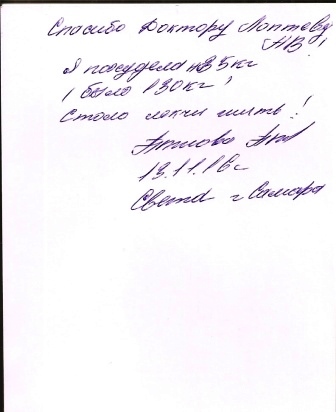 Спасибо Доктору Лаптеву
НВ!
Я похудела на 35кг
! было 130кг!
Стало легче жить!
13.11.16г
Света г Самара